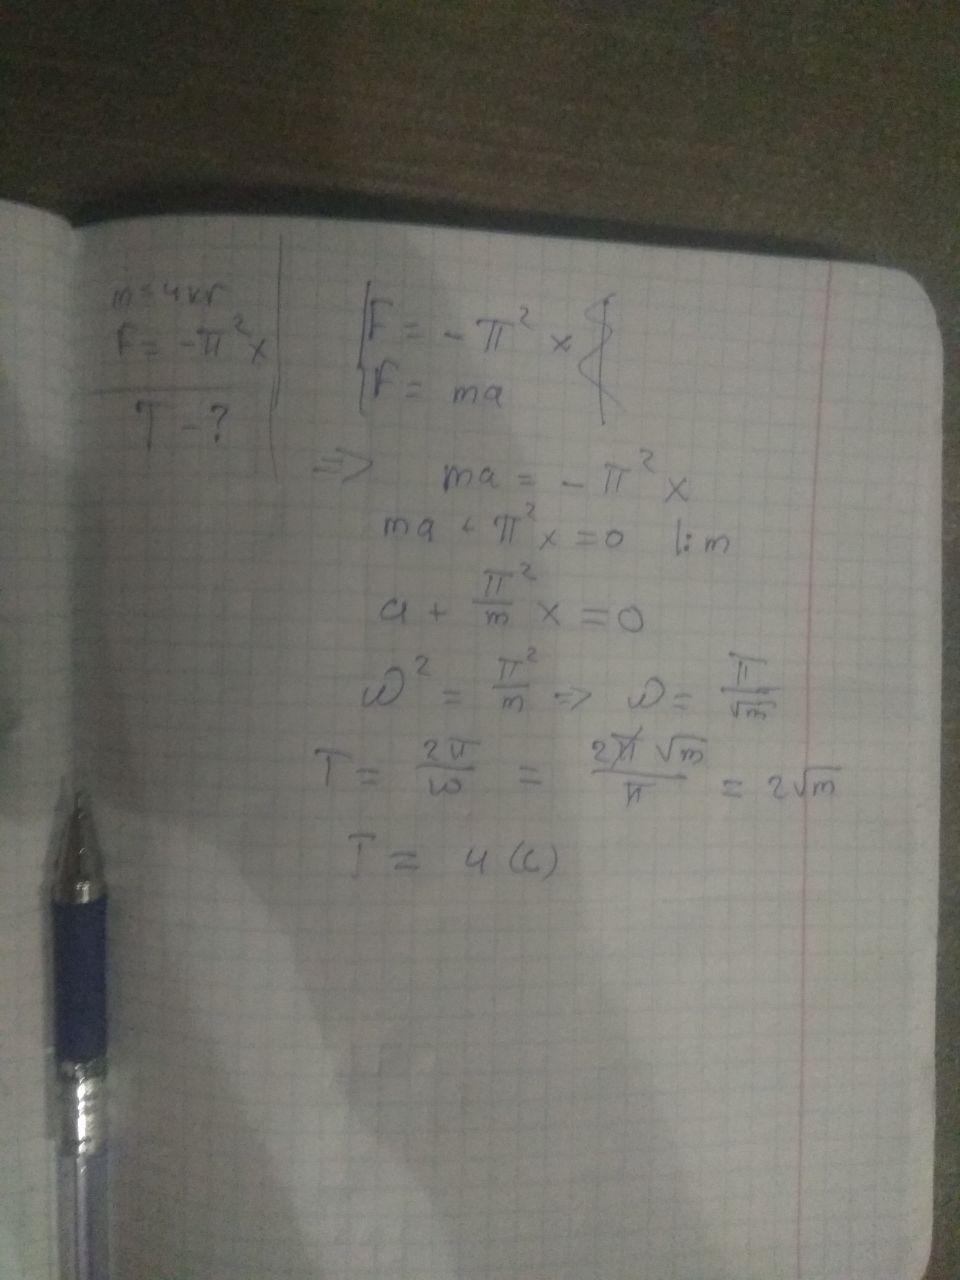 m = 4 кг
F = -π² x
T - ?
F = -π² x
F = ma
=> ma = -π² x
ma + π² x = 0 |: m
a + π²/m x = 0
ω² = π²/m => ω = π/√m
T = 2π/ω = 2π√m/π = 2√m
T = 4 (с)